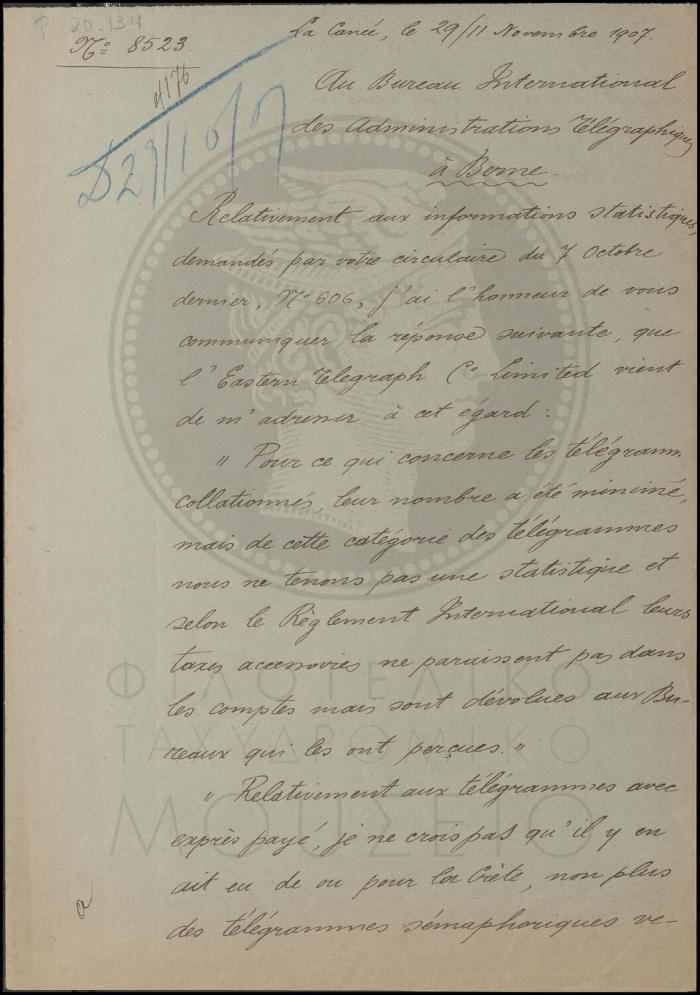 Φ 20.134
Nº 8523.
4176
D 29/10/07
La Canée, le 29/11 Novembre 1907.
Au Bureau International
des Administrations Télégraphiques
à Berne.
Relativement aux informations statistiques,
demandés par votre circulaire du 7 Octobre
dernier, Nº 606, j'ai l'honneur de vous
communiquer la réponse suivante, que
l'Eastern Telegraph Cº Limited vient
de m'adresser à cet égard :
" Pour ce qui concerne les télégramm.
collationnés, leur nombre a été minime,
mais de cette catégorie des télégrammes
nous ne tenons pas une statistique et
selon le Règlement International leurs
taxes accessoires ne paraissent pas dans
les comptes mais sont dévolues aux Bu-
reaux qui les ont perçues. "
" Relativement aux télégrammes avec
exprès payé, je ne crois pas qu'il y en
ait eu de ou pour la Crète, non plus
des télégrammes sémaphoriques ve-
a
ΦΙΛΟΤΕΛΙΚΟ
ΤΑΧΥΔΡΟΜΙΚΟ
ΜΟΥΣΕΙΟ